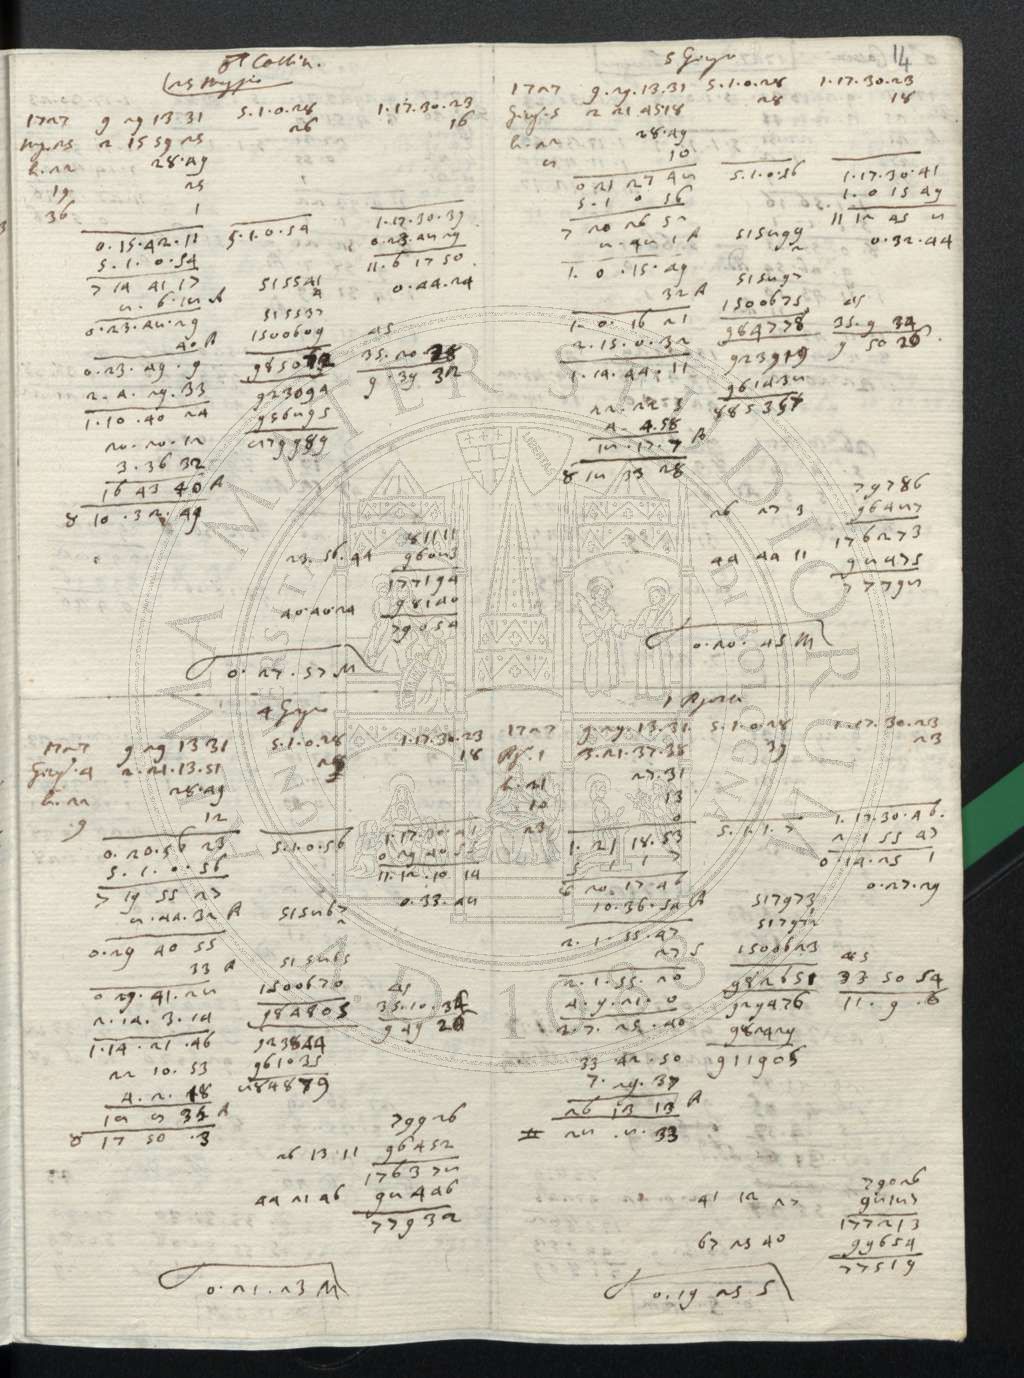 14
25 Maggio
1727 9 29 13 31 5.1.0.28 1.17.30.23
Mag.25 2 15 59 25 26 16
h.22 28.49
19 25
36 1
0.15.42.11 5.1.0.54 1.17.30.39
5.1.0.54 0.23.48.29
7 14 41 17 11.6 17 50
8.6.18 A 515541 0.44.24
0.23.48.29 4
40 A 515537
0.23.49.9 1500609 45
2.4.29.33 985072 35.20.28
1.10.40 24 923094 9.39 32
20.20.12 956895
3.36 32 879989
16 43 40 A
8 10.32.49
81111
23.56.44 96083
177194
40.40.24 98140
79054
0.27.57 M
5 Giug
1727 9.29.13.31 5.1.0.28 1.17.30.23
Giug.5 2 21 4518 28 18
h.22 28.49
8 10
0 21 27 48 5.1.0.56 1.17.30.41
5.1 0 56 1.0 15 49
7 20 26 52 11 12 45 8
8.48 1 A 515899 0.32.44
1.0.15.49 2
32 A 515897
1.0.16 21 1500675 45
2.15.0.32 984778 35.9 34
1.14.44.11 923919 9 50 26
22.22 3 961438
885357
18.17.7 A
8 18 33 28
79786
26 27 3 96487
176273
44 44 11 98475
77798
0.20.45 M
4 Giug
1727 9 29 13 31 5.1.0.28 1.17.30.23
Giug.4 2.21.13.51 28 18
h.22 28.49
.9 12
0.20.56 23 5.1.0.56 1.17.30 41
5.1.0.56 0 29 40 55
7 19 55 27 11.12.10 14
8.44.32 A 515867 0.33.48
0.29 40 55 2
33 A 515865
0 29.41.28 1500670 45
2.14.3.14 984805 35.10.34
1.14.21.46 923844 9 49 26
22 10.53 961035
4.2.18 884879
18 8 35 A
8 17 50 .3
79926
26 13 11 96452
176378
44 21 46 98446
77932
0.21.23 M
1727 9.29.13.31 5.1.0.28 1.17.30.23
3.21.37.38 39 23
h.21 27.31
10 13
23 0
1.21 18.53 5.1.1.7 1.17.30.46
5 1 1 7 2 1 55 47
20.17.46 0.14.25 1
10.36.54 A 517973 0.27.29
2.1.55.47 517972
27 S 1500623 45
2.1.55.20 982651 33 50 54
4.9.21.0 929476 11.9.6
2.7.25.40 982429
33 42.50 911905
7.29.37
26 13 13 A
II 28.8.33
79026
41 12 27 98187
177213
67 25 40 99654
77519
0.19 25 S